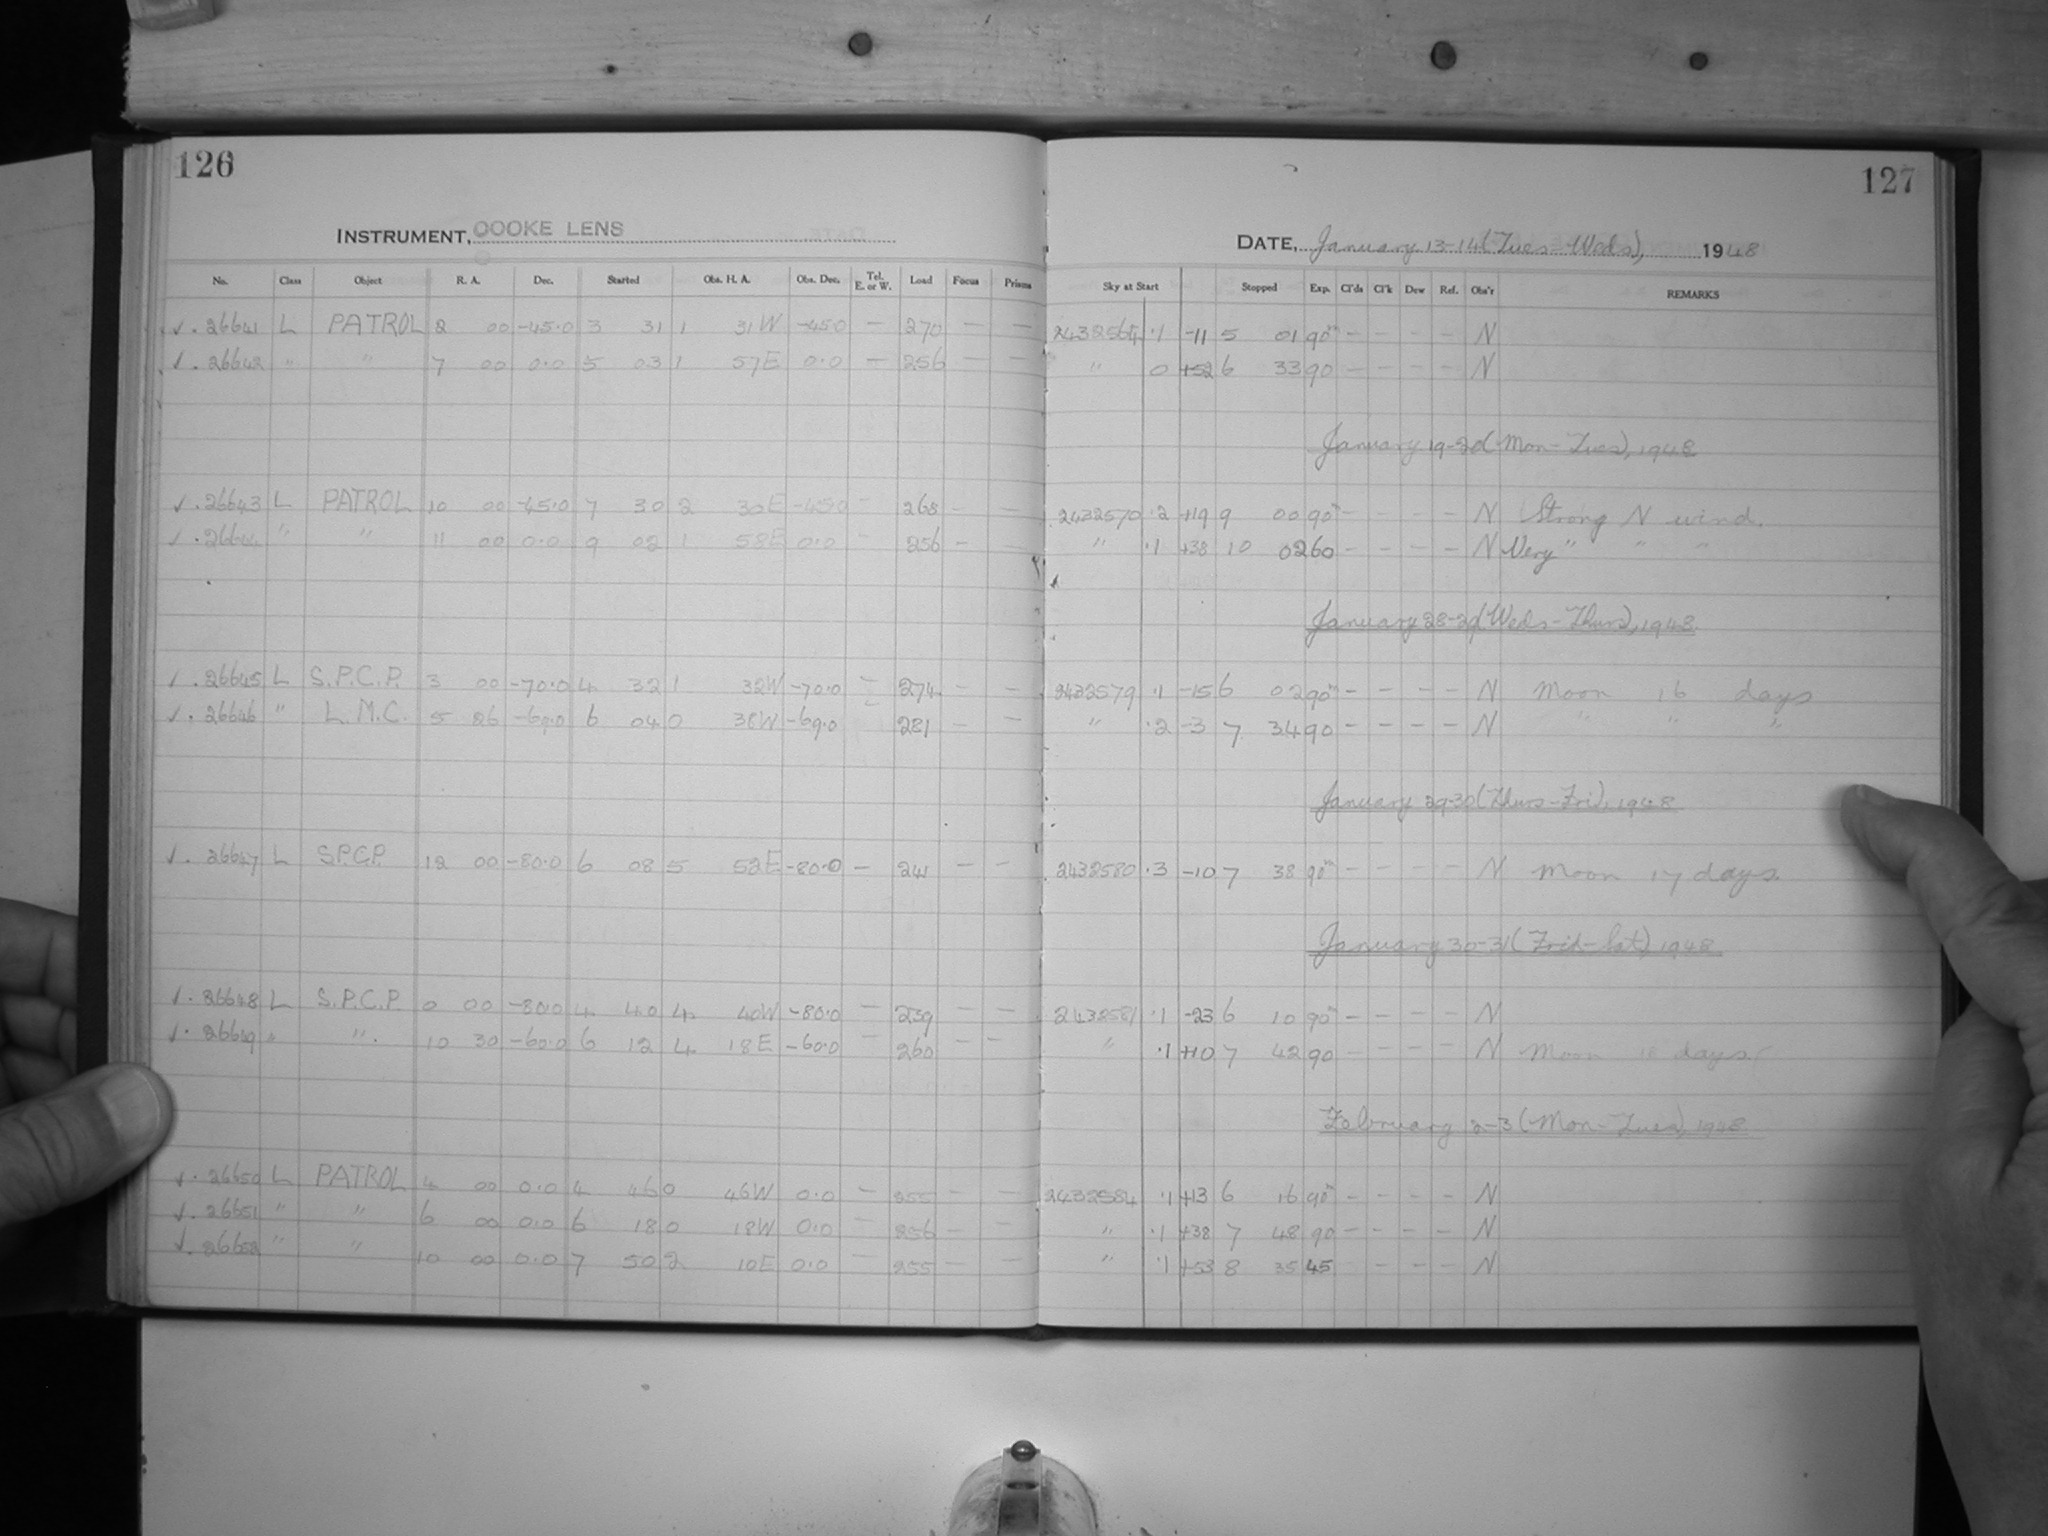 126
127
INSTRUMENT, COOKE LENS
DATE, January 13-14 (Tues-Weds), 1948
No. Class Object R. A. Dec. Started Obs. H. A. Obs. Dec. Tel. E. or W. Load Focus Prisms Sky at Start Stopped Exp. Cl'ds Cl'k Dew Ref. Obs'r REMARKS
✓. 26641 L PATROL 2 00 -45.0 3 31 1 31W -45.0 — 270 — — 2432564 .1 -11 5 01 90m — — — — N
✓. 26642 " " 7 00 0.0 5 03 1 57E 0.0 — 256 — — " 0 +52 6 33 90 — — — — N
January 19-20 (Mon-Tues), 1948
✓. 26643 L PATROL 10 00 -45.0 7 30 2 30E -45.0 — 268 — — 2432570 .2 +19 9 00 90m — — — — N Strong N wind.
✓. 26644 " " 11 00 0.0 9 02 1 58E 0.0 — 256 — — " .1 +38 10 02 60 — — — — N Very " " "
January 28-29 (Weds-Thurs), 1948
✓. 26645 L S.P.C.P. 3 00 -70.0 4 32 1 32W -70.0 — 274 — — 2432579 .1 -15 6 02 90m — — — — N Moon 16 days
✓. 26646 " L.M.C. 5 26 -69.0 6 04 0 38W -69.0 — 281 — — " .2 -3 7 34 90 — — — — N " " "
January 29-30 (Thurs-Fri), 1948
✓. 26647 L S.P.C.P. 12 00 -80.0 6 08 5 52E -80.0 — 241 — — 2432580 .3 -10 7 38 90m — — — — N Moon 17 days.
January 30-31 (Frid-Sat) 1948
✓. 26648 L S.P.C.P. 0 00 -80.0 4 40 4 40W -80.0 — 239 — — 2432581 .1 -23 6 10 90m — — — — N
✓. 26649 " " 10 30 -60.0 6 12 4 18E -60.0 — 260 — — " .1 +10 7 42 90 — — — — N Moon 18 days
February 2-3 (Mon-Tues), 1948
✓. 26650 L PATROL 4 00 0.0 4 46 0 46W 0.0 — 255 — — 2432584 .1 +13 6 16 90m — — — — N
✓. 26651 " " 6 00 0.0 6 18 0 18W 0.0 — 256 — — " .1 +38 7 48 90 — — — — N
✓. 26652 " " 10 00 0.0 7 50 2 10E 0.0 — 255 — — " .1 +53 8 35 45 — — — N